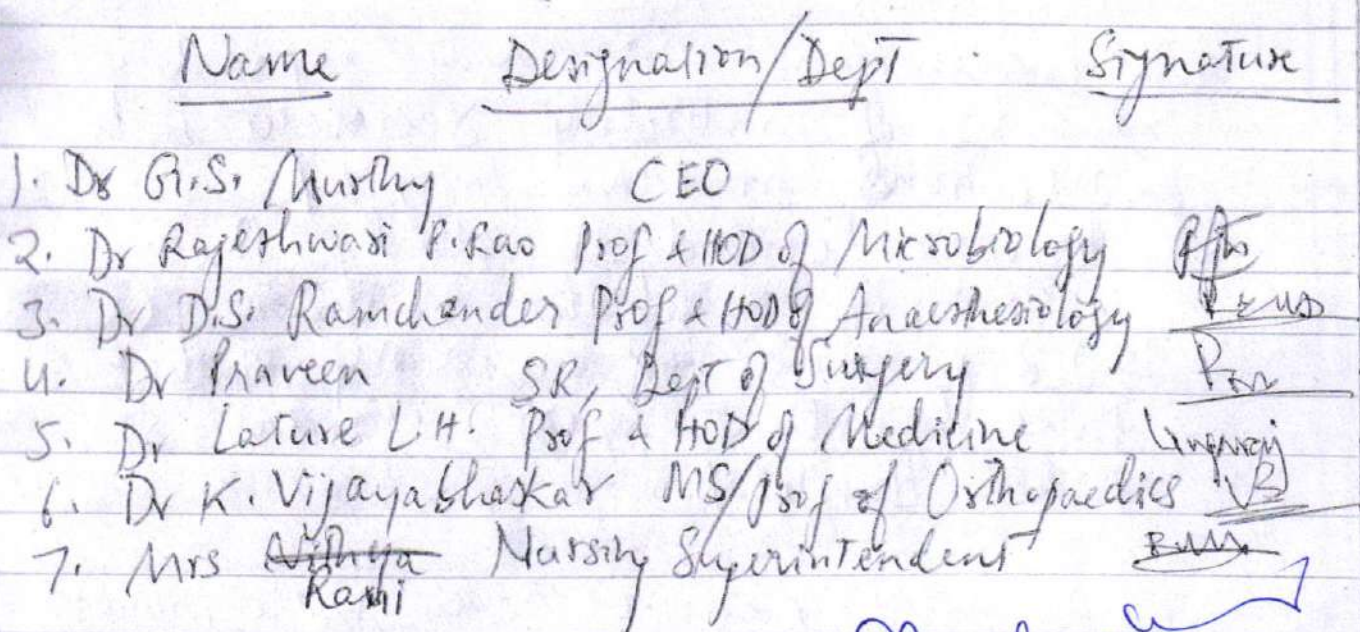 Name Designation/Dept Signature
1. Dr G.S. Murthy CEO
2. Dr Rajeshwari P. Rao Prof & HOD of Microbiology
3. Dr D.S. Ramchander Prof & HOD of Anaesthesiology
4. Dr Praveen SR, Dept of Surgery
5. Dr Lature L.H. Prof & HOD of Medicine
6. Dr K. Vijayabhaskar MS/Prof of Orthopaedics VB
7. Mrs Nithya Nursing Superintendent
Rani